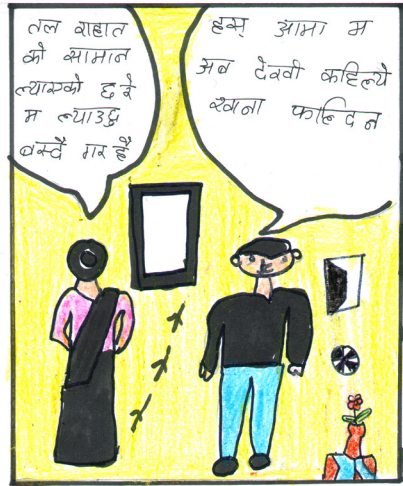 तल राहात
को सामान
ल्याएको छ रे
म ल्याउछु
बस्दै गर है
हस् आमा म
अब देखी कहिल्यै
खाना फाल्दिन